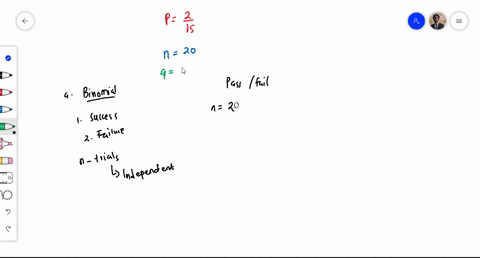 P = 2/15
n = 20
q =
a. Binomial
1. Success
2. Failure
n - trials
↳ Independent
Pass / fail
n = 20